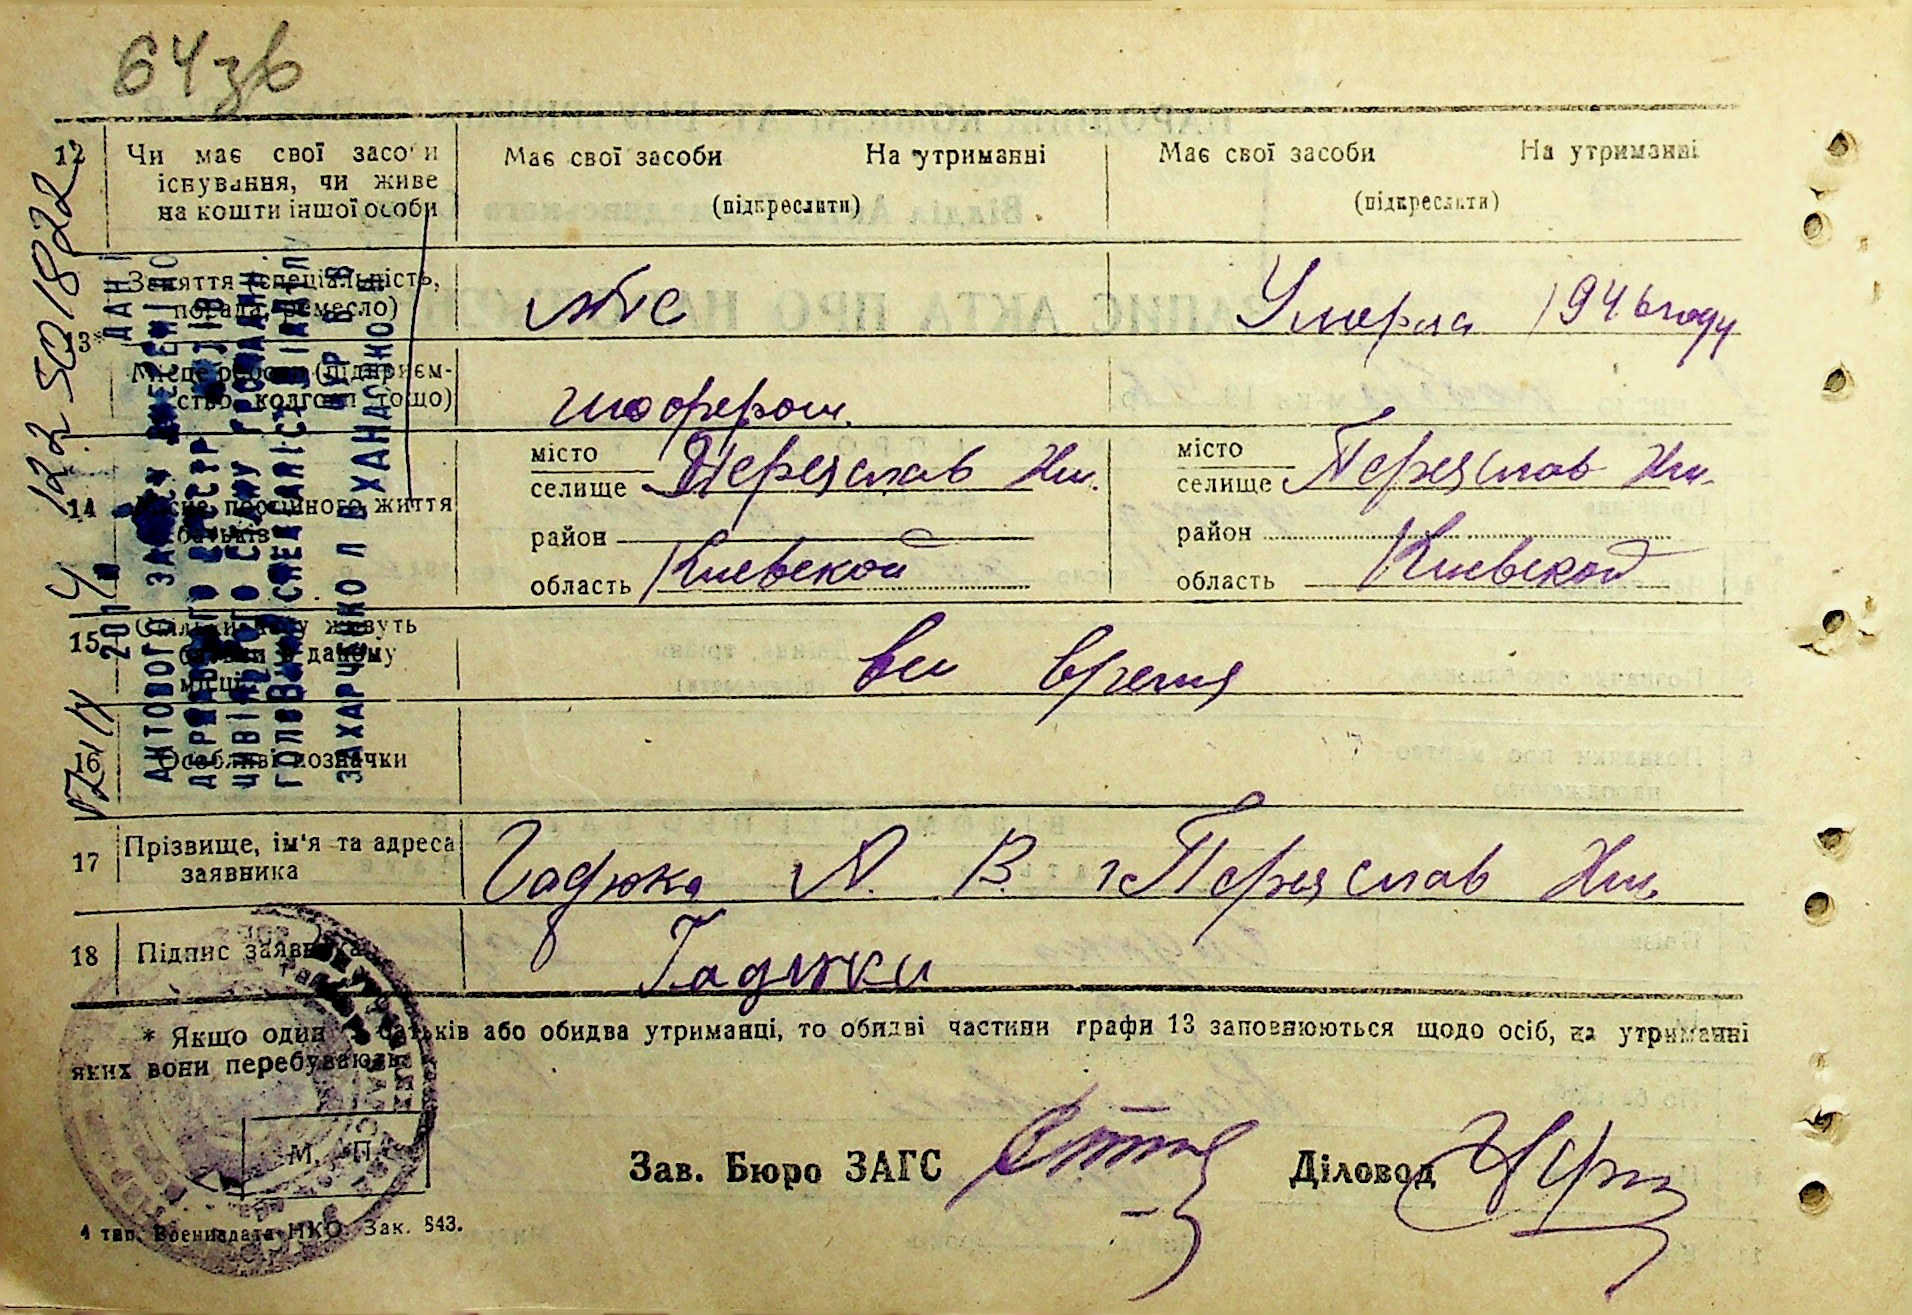 64зв
12 Чи має свої засоби Має свої засоби На утриманні Має свої засоби На утриманні
існування, чи живе
на кошти іншої особи (підкреслити) (підкреслити)
Заняття (спеціальність,
посада, ремесло) МТС Умерла 1946 году
13*
Місце роботи (підприєм-
ство, колгосп тощо) шофером.
місто Переяслав Хм. місто Переяслав Хм.
селище селище
14 Місце постійного життя
батьків район район
область Киевской область Киевской
15 Скільки часу живуть
батьки в даному все время
місці
16 Особливі позначки
17 Прізвище, ім'я та адреса Гадюка А. В. г Переяслав Хм.
заявника
18 Підпис заявника Гадюки
* Якщо один з батьків або обидва утриманці, то обидві частини графи 13 заповнюються щодо осіб, на утриманні
яких вони перебувають.
М. П. Зав. Бюро ЗАГС Діловод
4 тип. Воениздата НКО. Зак. 843.
122 501822
ДАНІ
2014
АКТОВОГО ЗАПИСУ ВНЕСЕНІ ДО
ДЕРЖАВНОГО РЕЄСТРУ АКТІВ
ЦИВІЛЬНОГО СТАНУ ГРОМАДЯН.
ГОЛОВНИЙ СПЕЦІАЛІСТ ВІДДІЛУ
ЗАХАРЧЕНКО Л В ХАНДАСЮК О В